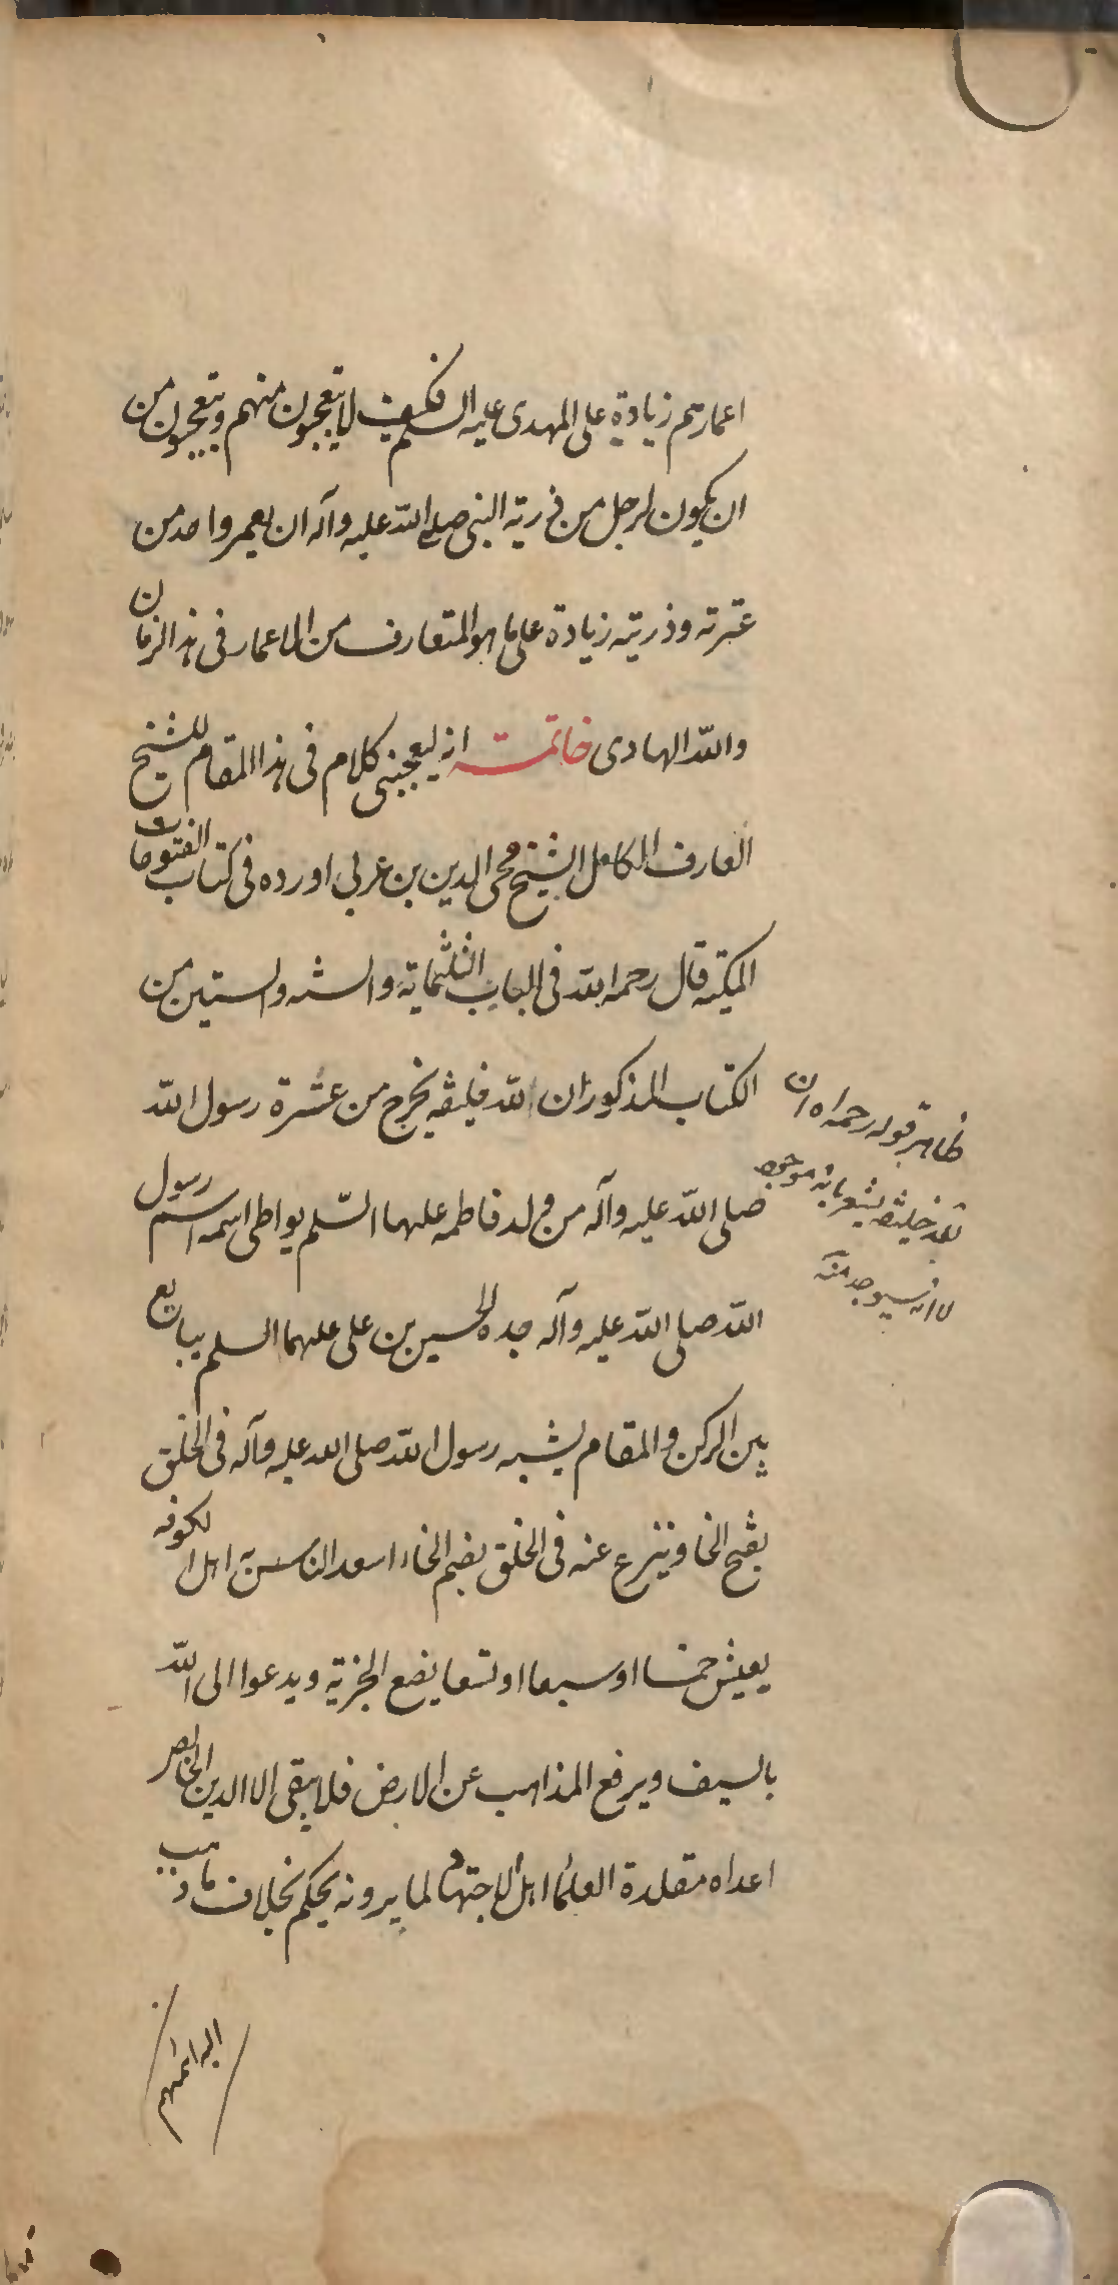 اعمارهم زيادة على المهدى عليه السلم فكيف لا يتعجبون منهم ويتعجبون من
ان يكون لرجل من ذرية النبى صلى الله عليه وآله ان يعمر واحد من
عترته وذريته زيادة على ما هو المتعارف من الاعمار فى هذا الزمان
والله الهادى خاتمة انه ليعجبنى كلام فى هذا المقام للشيخ
العارف الكامل الشيخ محى الدين بن عربى اورده فى كتاب الفتوحات
المكية قال رحمه الله فى الباب الثلثمائة والستة والستين من
الكتاب المذكور ان لله خليفة يخرج من عشرة رسول الله
صلى الله عليه وآله من ولد فاطمه عليها السلم يواطى اسمه اسم رسول
الله صلى الله عليه وآله جده الحسين بن على عليهما السلم يبايع
بين الركن والمقام يشبه رسول الله صلى الله عليه وآله فى الخلق
بفتح الخا وينزع عنه فى الخلق بضم الخاء اسعد الناس به اهل الكوفه
يعيش خمسا او سبعا او تسعا يضع الجزية ويدعوا الى الله
بالسيف ويرفع المذاهب عن الارض فلا يبقى الا الدين الخالص
اعداه مقلدة العلما اهل الاجتهاد لما يرونه يحكم بخلاف ما ذهب
اليه ائمتهم
ظاهر قوله رحمه الله ان
لله خليفة يشعر بانه موجود
لا انه سيوجد منه